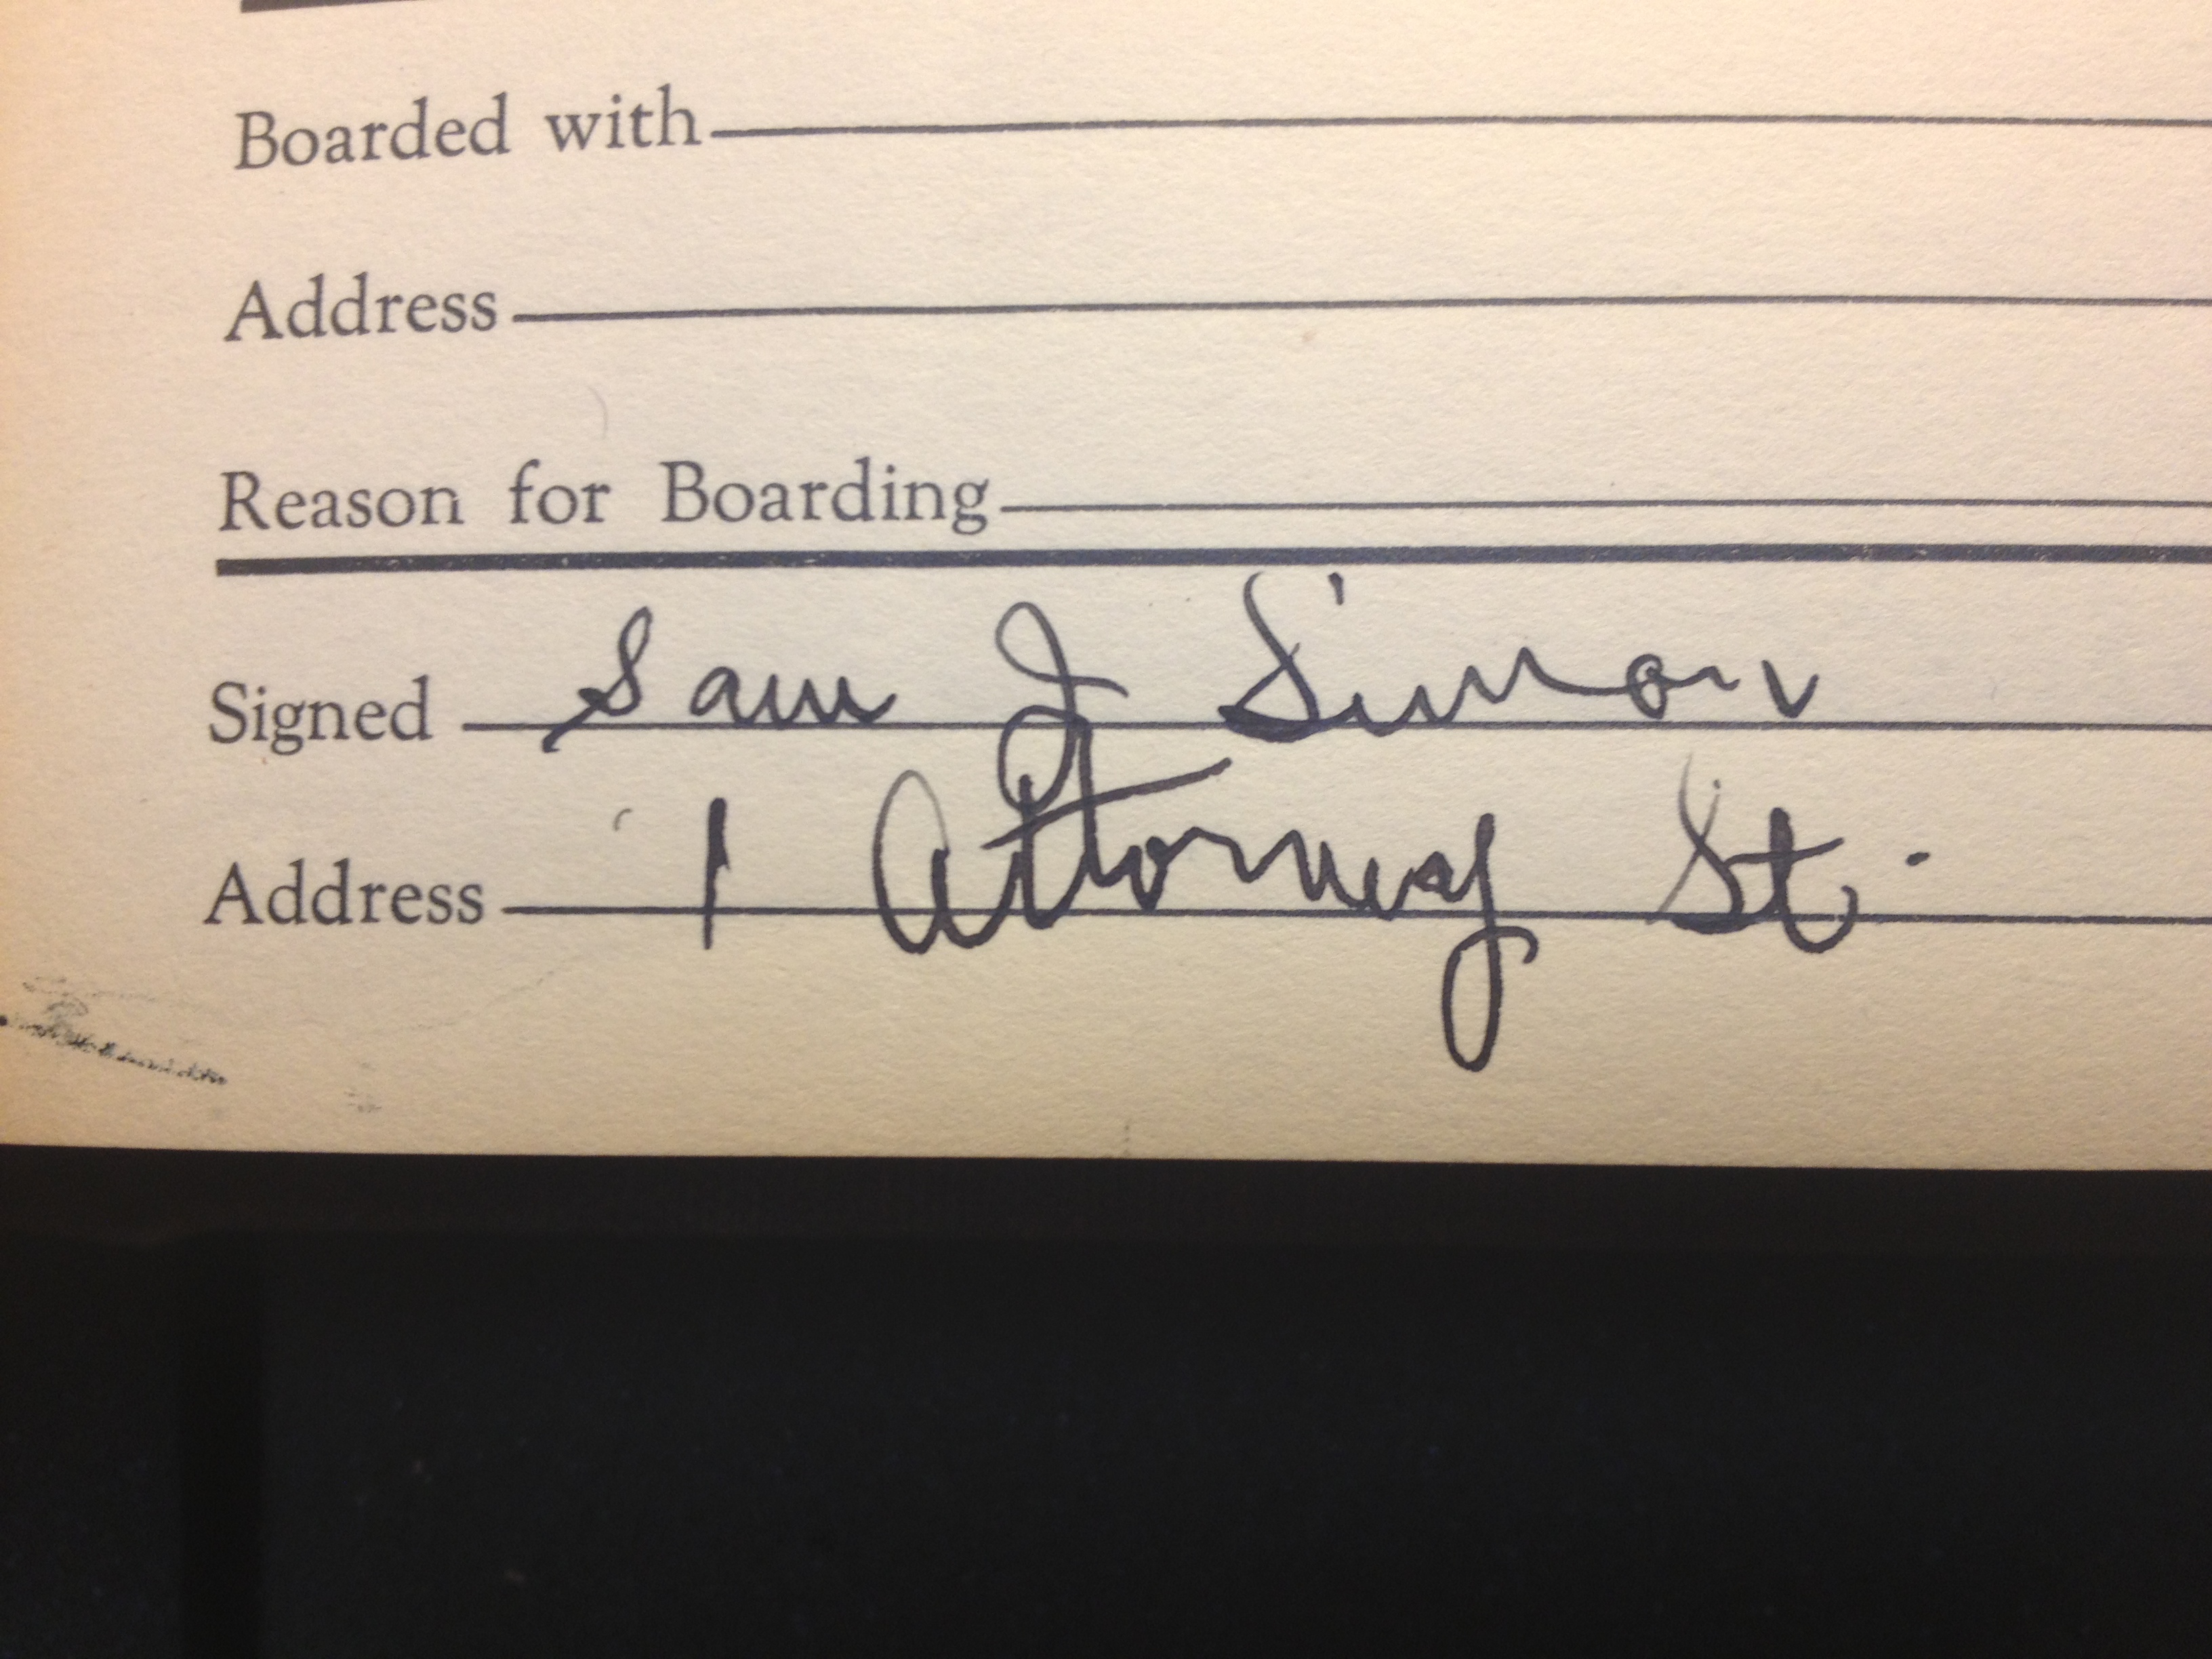 Boarded with
Address
Reason for Boarding
Signed Sam J Simon
Address 1 Attorney St.